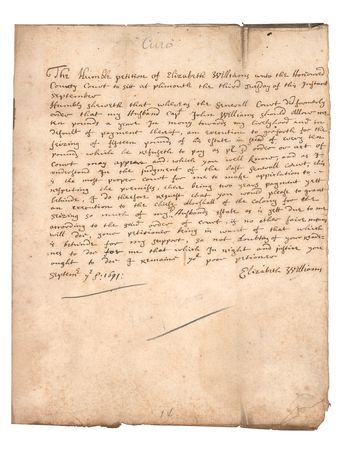 The Humble petition of Elizabeth Williams unto the Honoured
County Court to sit at plimouth the third tusday of this Instant
September
Humbly sheweth that whereas the Generall Court did formerly
order that my Husband Capt John Williams should allow me
ten pounds a yeare In mony towards my livelyhood and in
default of payment thereof, an execution to goe forth for the
seizing of fifteen pounds of his estate in stead of every ten
pounds which he refuseth to pay as pr sd order or act of
Court may appear and which you well know, and as I
understand In the judgment of the last generall court; this
is the most proper Court for me to make application to
respecting the premises, there being two years payment yett
behinde, I do therefore request that you would please to grant
an execution to the cheife Marshall of the Colony for the
seizing so much of my Husbands estate as is yett due to me
according to the said order of court, if no other faire means
will doe, your petitioner being in want of that which
is behinde for my support, so not doubting of your
to doe for me that which In right and justice you
ought to doe I remaine yor poor petitioner
Septemr ye 8: 1691: Elizabeth Williams